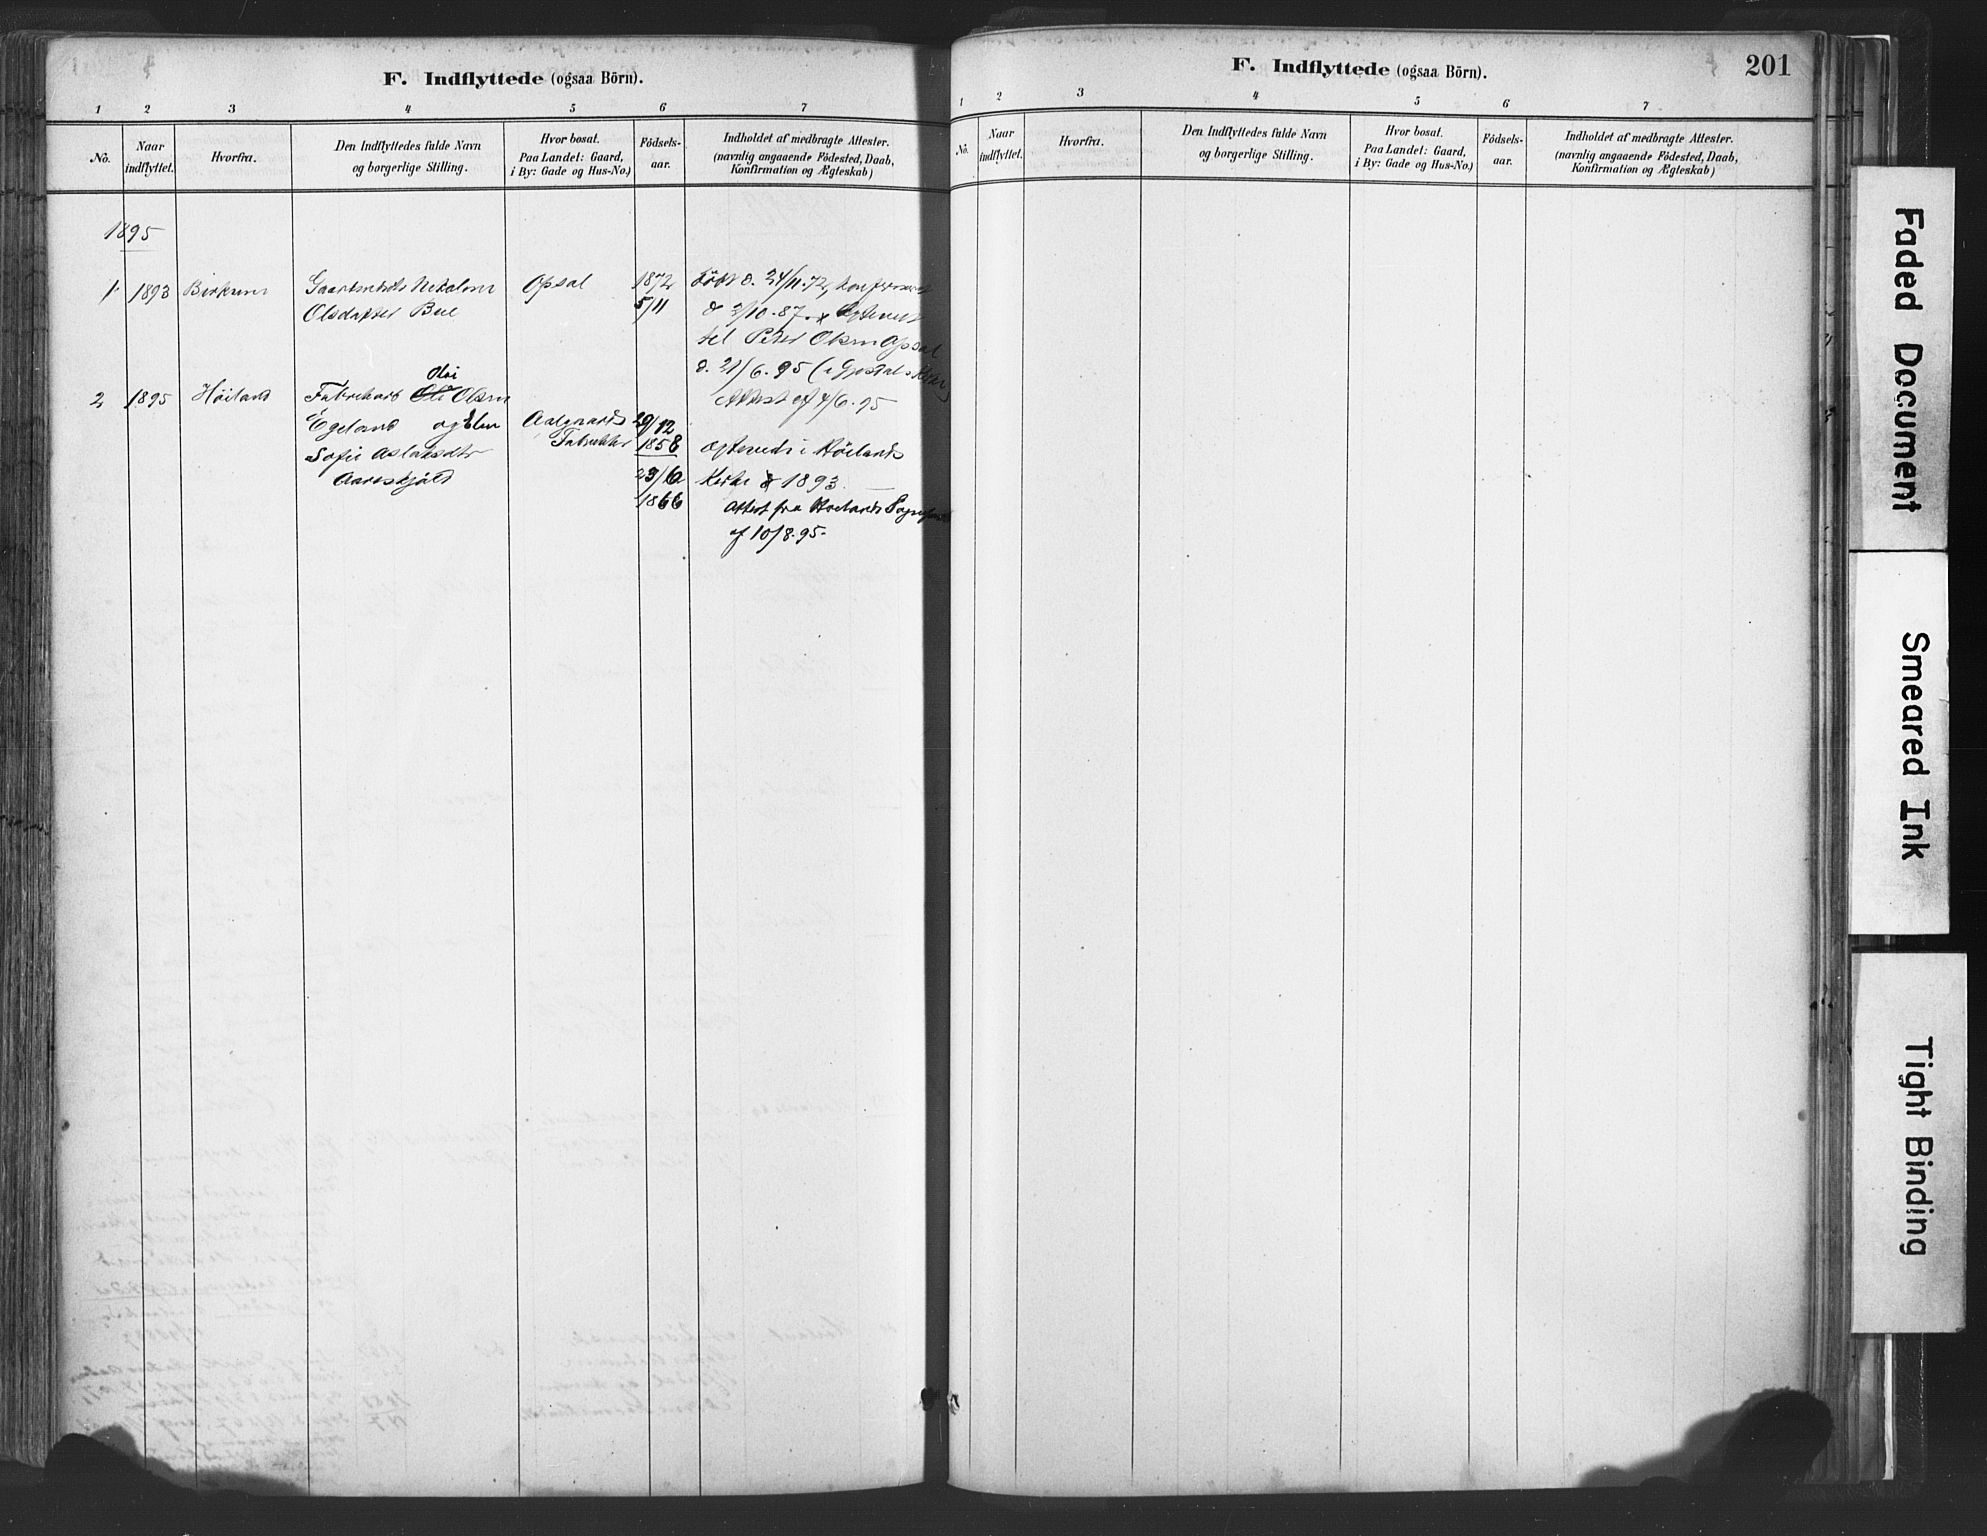 F. Indflyttede (ogsaa Börn).
1 2 3 4 5 6 7
No.
Naar indflyttet.
Hvorfra.
Den Indflyttedes fulde Navn
og borgerlige Stilling.
Hvor bosat.
Paa Landet: Gaard,
i By: Gade og Hus-No.)
Födsels-
aar.
Indholdet af medbragte Attester.
(navnlig angaaende Födested, Daab,
Konfirmation og Ægteskab)
1895
1 1893 Birkrem
Olsdatter Bue
Opsal
1872
5/11
Født d. 24/11.72, konfirmeret
d 2/10.87. Ægteviet
til Peter Olsen Opsal
d. 21/6.95 (i Gjesdals Kirke)
Attest af 4/6.95
2 1895 Høiland
Oloi
Ole Olsen
Egeland og Elen
Sofie Aslaksdtr
Aareskjold
Aalgaards
Fabrikker
29/12
1858
23/6
1866
Ægteviede i Høilands
Kirke d 1893.
Attest fra Høilands Sognepr
af 10/8.95.
F. Indflyttede (ogsaa Börn).
201
1 2 3 4 5 6 7
No.
Naar
indflyttet.
Hvorfra.
Den Indflyttedes fulde Navn
og borgerlige Stilling.
Hvor bosat.
Paa Landet: Gaard,
i By: Gade og Hus-No.)
Födsels-
aar.
Indholdet af medbragte Attester.
(navnlig angaaende Födested, Daab,
Konfirmation og Ægteskab)
Faded Document
Smeared Ink
Tight Binding